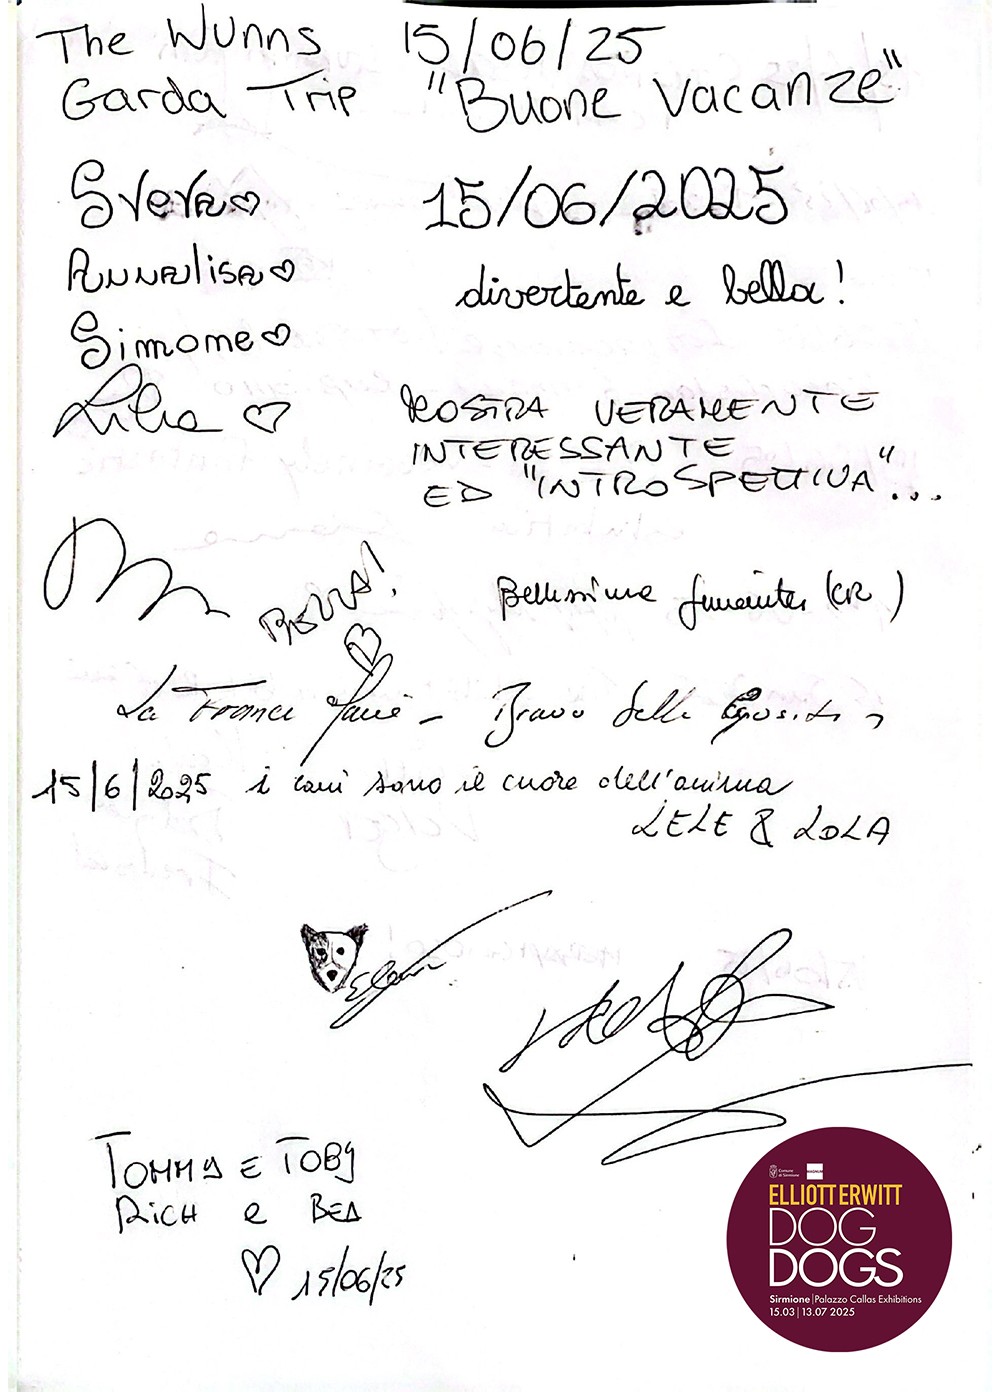 The Wunns 15/06/25
Garda Trip "Buone Vacanze"
Sveva
15/06/2025
Annalisa
divertente e bella!
Simone
Lilia
MOSTRA VERAMENTE
INTERESSANTE
ED "INTROSPETTIVA"...
BELLA!
Bellissima (CR)
La
Bravo
15/6/2025 i cani sono il cuore dell'anima
LELE & LOLA
TOMMY E TOBY
RICH e BEA
15/06/25
Comune di Sirmione
ELLIOTT ERWITT
DOG
DOGS
Sirmione | Palazzo Callas Exhibitions
15.03 | 13.07 2025